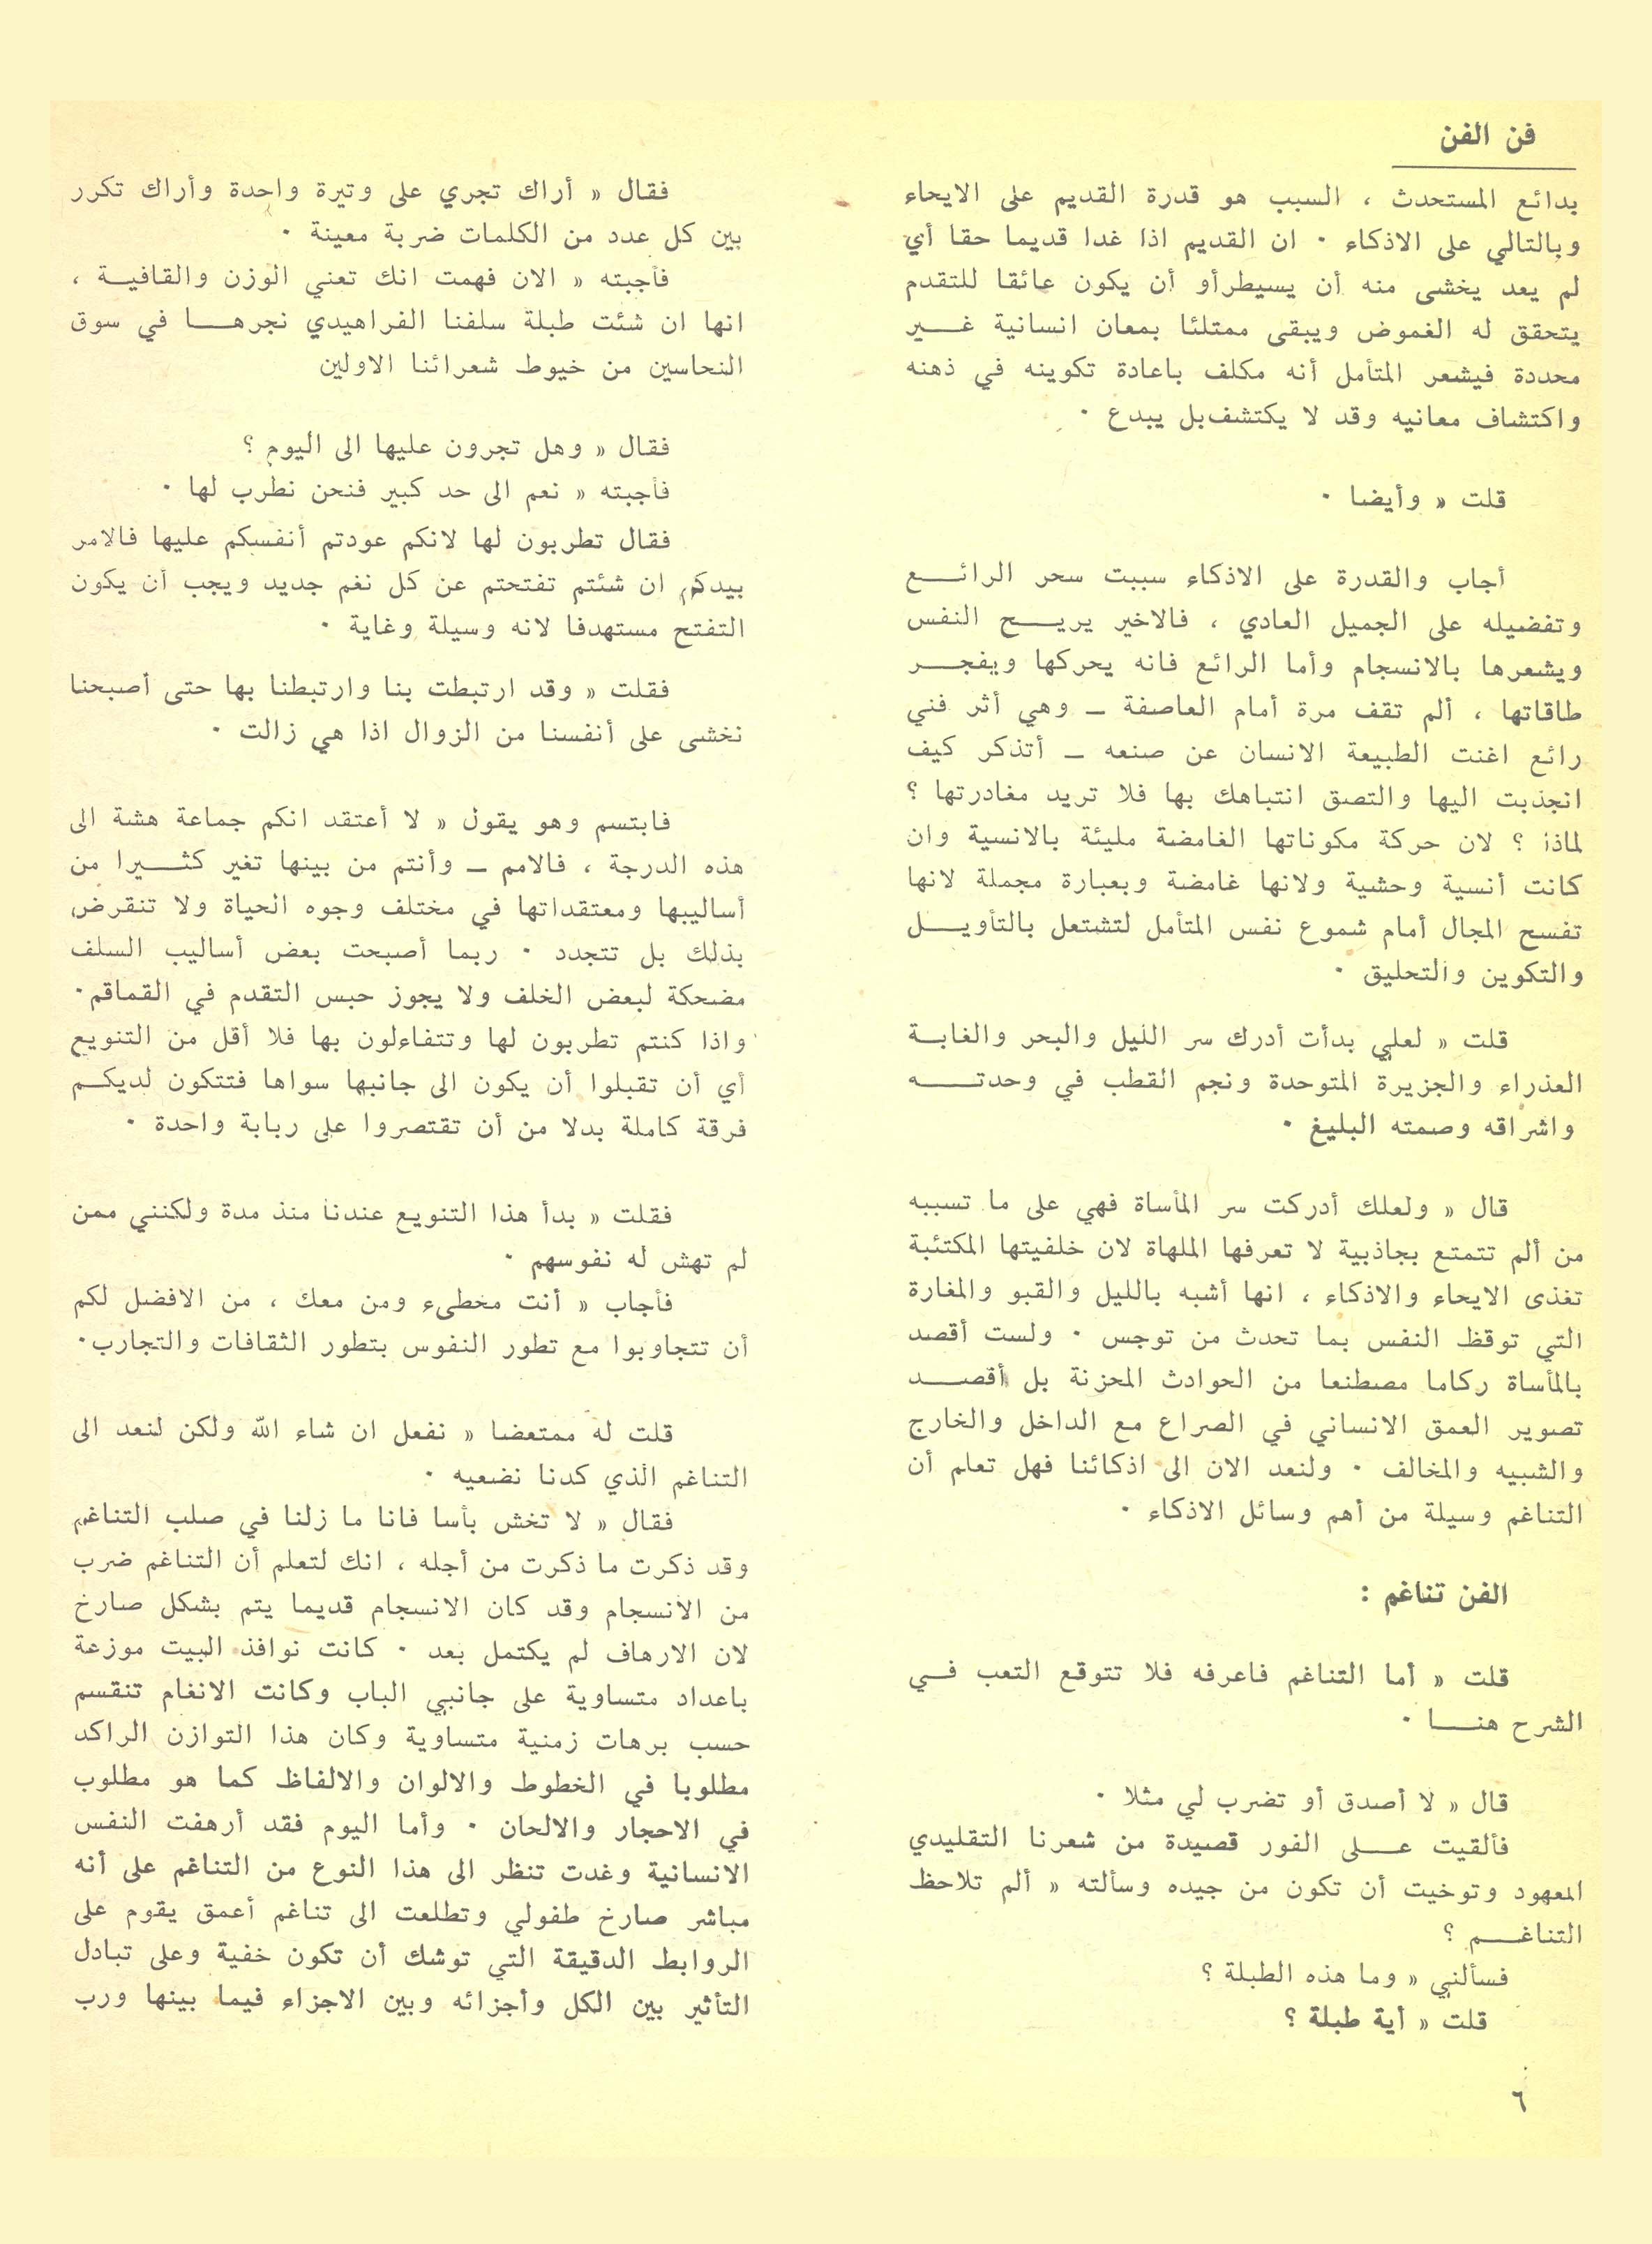 فن الفن
بدائع المستحدث ، السبب هو قدرة القديم على الايحاء
وبالتالي على الاذكاء ٠ ان القديم اذا غدا قديما حقا أي
لم يعد يخشى منه أن يسيطرأو أن يكون عائقا للتقدم
يتحقق له الغموض ويبقى ممتلئا بمعان انسانية غـــير
محددة فيشعر المتأمل أنه مكلف باعادة تكوينه في ذهنه
واكتشاف معانيه وقد لا يكتشف بل يبدع ٠
قلت « وأيضا ٠
أجاب والقدرة على الاذكاء سببت سحر الرائـــع
وتفضيله على الجميل العادي ، فالاخير يريـــح النفس
ويشعرها بالانسجام وأما الرائع فانه يحركها ويفجـــر
طاقاتها ، ألم تقف مرة أمام العاصفة ــ وهي أثر فني
رائع اغنت الطبيعة الانسان عن صنعه ــ أتذكر كيف
انجذبت اليها والتصق انتباهك بها فلا تريد مغادرتها ؟
لماذا ؟ لان حركة مكوناتها الغامضة مليئة بالانسية وان
كانت أنسية وحشية ولانها غامضة وبعبارة مجملة لانها
تفسح المجال أمام شموع نفس المتأمل لتشتعل بالتأويـــل
والتكوين والتحليق ٠
قلت « لعلي بدأت أدرك سر الليل والبحر والغابـــة
العذراء والجزيرة المتوحدة ونجم القطب في وحدتـــه
واشراقه وصمته البليغ ٠
قال « ولعلك أدركت سر المأساة فهي على ما تسببه
من ألم تتمتع بجاذبية لا تعرفها الملهاة لان خلفيتها المكتئبة
تغذى الايحاء والاذكاء ، انها أشبه بالليل والقبو والمغارة
التي توقظ النفس بما تحدث من توجس ٠ ولست أقصد
بالمأساة ركاما مصطنعا من الحوادث المحزنة بل أقصـــد
تصوير العمق الانساني في الصراع مع الداخل والخارج
والشبيه والمخالف ٠ ولنعد الان الى اذكائنا فهل تعلم أن
التناغم وسيلة من أهم وسائل الاذكاء ٠
الفن تناغم :
قلت « أما التناغم فاعرفه فلا تتوقع التعب فـــي
الشرح هنـــا ٠
قال « لا أصدق أو تضرب لي مثلا ٠
فألقيت عـــلى الفور قصيدة من شعرنا التقليدي
المعهود وتوخيت أن تكون من جيده وسألته « ألم تلاحظ
التناغـــم ؟
فسألني « وما هذه الطبلة ؟
قلت « أية طبلة ؟
فقال « أراك تجري على وتيرة واحدة وأراك تكرر
بين كل عدد من الكلمات ضربة معينة ٠
فأجبته « الان فهمت انك تعني الوزن والقافيـــة ،
انها ان شئت طبلة سلفنا الفراهيدي نجرهـــا في سوق
النحاسين من خيوط شعرائنا الاولين
فقال « وهل تجرون عليها الى اليوم ؟
فأجبته « نعم الى حد كبير فنحن نطرب لها ٠
فقال تطربون لها لانكم عودتم أنفسكم عليها فالامر
بيدكم ان شئتم تفتحتم عن كل نغم جديد ويجب أن يكون
التفتح مستهدفا لانه وسيلة وغاية ٠
فقلت « وقد ارتبطت بنا وارتبطنا بها حتى أصبحنا
نخشى على أنفسنا من الزوال اذا هي زالت ٠
فابتسم وهو يقول « لا أعتقد انكم جماعة هشة الى
هذه الدرجة ، فالامم ــ وأنتم من بينها تغير كثـــيرا من
أساليبها ومعتقداتها في مختلف وجوه الحياة ولا تنقرض
بذلك بل تتجدد ٠ ربما أصبحت بعض أساليب السلف
مضحكة لبعض الخلف ولا يجوز حبس التقدم في القماقم ٠
واذا كنتم تطربون لها وتتفاءلون بها فلا أقل من التنويع
أي أن تقبلوا أن يكون الى جانبها سواها فتتكون لديكـــم
فرقة كاملة بدلا من أن تقتصروا على ربابة واحدة ٠
فقلت « بدأ هذا التنويع عندنا منذ مدة ولكنني ممن
لم تهش له نفوسهم ٠
فأجاب « أنت مخطىء ومن معك ، من الافضل لكم
أن تتجاوبوا مع تطور النفوس بتطور الثقافات والتجارب ٠
قلت له ممتعضا « نفعل ان شاء الله ولكن لنعد الى
التناغم الذي كدنا نضعيه ٠
فقال « لا تخش بأسا فانا ما زلنا في صلب التناغم
وقد ذكرت ما ذكرت من أجله ، انك لتعلم أن التناغم ضرب
من الانسجام وقد كان الانسجام قديما يتم بشكل صارخ
لان الارهاف لم يكتمل بعد ٠ كانت نوافذ البيت موزعة
باعداد متساوية على جانبي الباب وكانت الانغام تنقسم
حسب برهات زمنية متساوية وكان هذا التوازن الراكد
مطلوبا في الخطوط والالوان والالفاظ كما هو مطلوب
في الاحجار والالحان ٠ وأما اليوم فقد أرهفت النفس
الانسانية وغدت تنظر الى هذا النوع من التناغم على أنه
مباشر صارخ طفولي وتطلعت الى تناغم أعمق يقوم على
الروابط الدقيقة التي توشك أن تكون خفية وعلى تبادل
التأثير بين الكل وأجزائه وبين الاجزاء فيما بينها ورب
٦